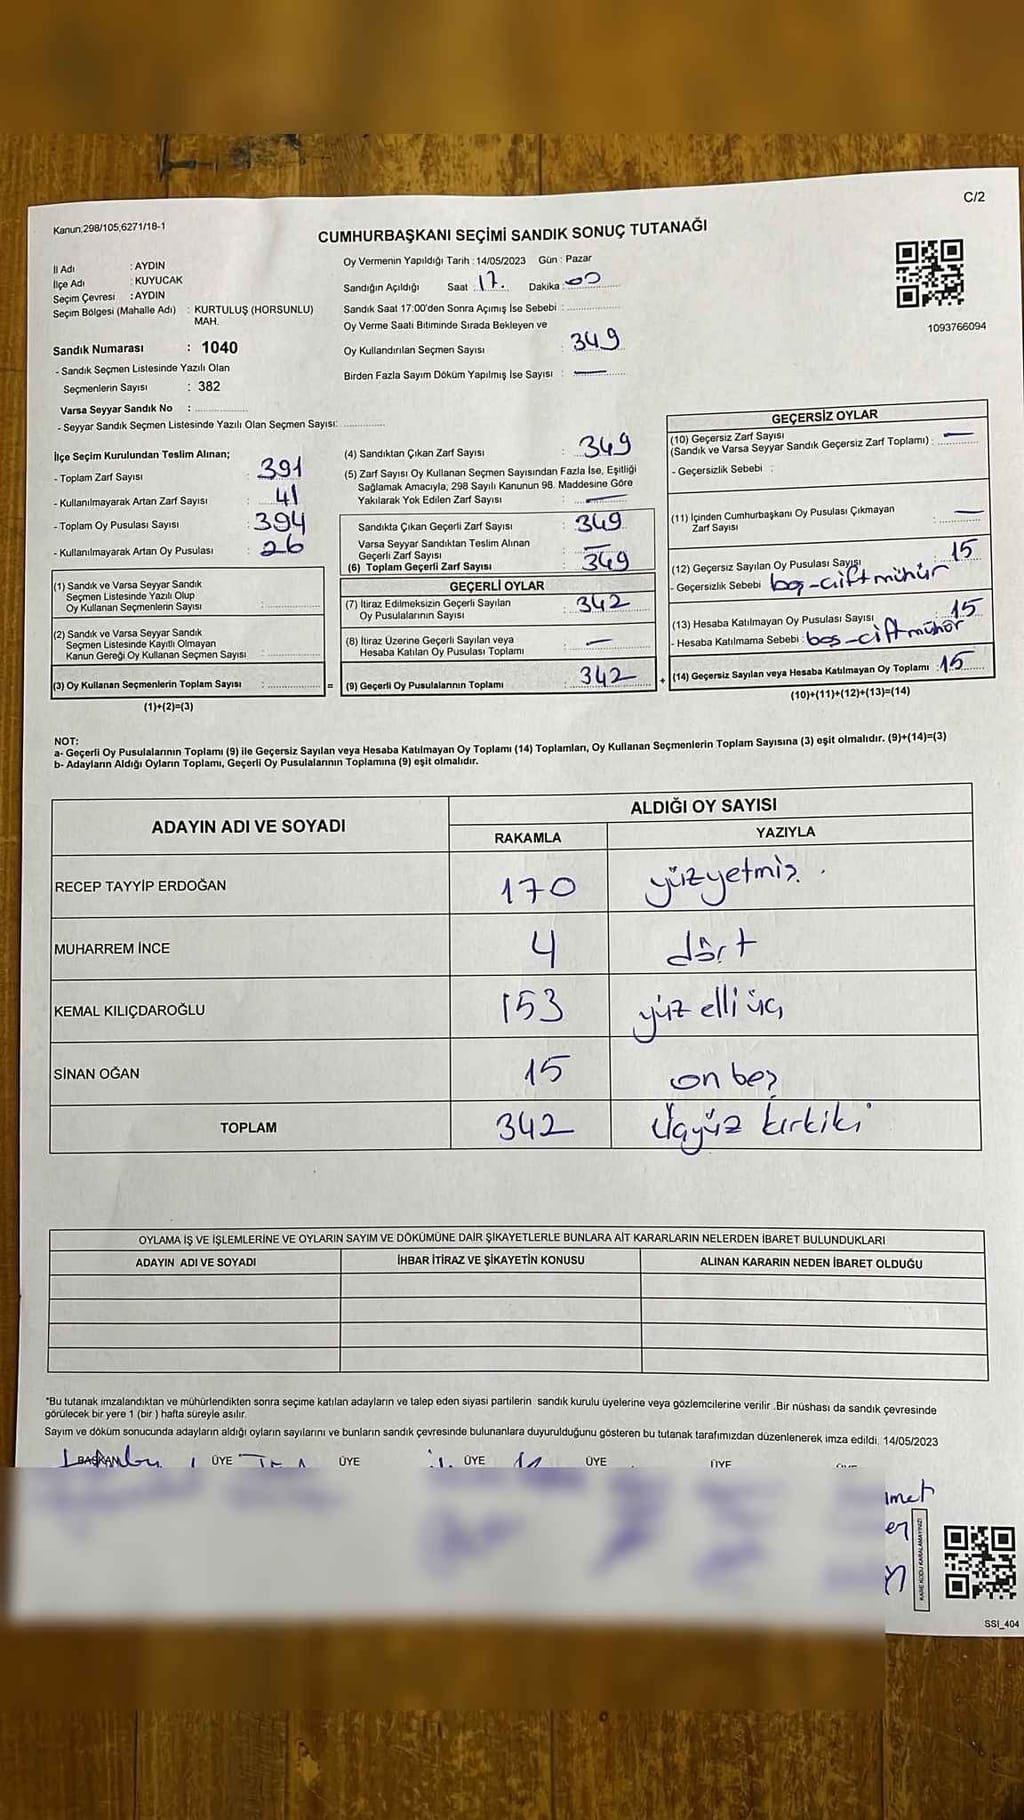 C/2
Kanun,298/105,6271/18-1
CUMHURBAŞKANI SEÇİMİ SANDIK SONUÇ TUTANAĞI
İl Adı : AYDIN
İlçe Adı : KUYUCAK
Seçim Çevresi : AYDIN
Seçim Bölgesi (Mahalle Adı) : KURTULUŞ (HORSUNLU)
MAH.
Sandık Numarası : 1040
- Sandık Seçmen Listesinde Yazılı Olan
Seçmenlerin Sayısı : 382
Varsa Seyyar Sandık No :
- Seyyar Sandık Seçmen Listesinde Yazılı Olan Seçmen Sayısı:
Oy Vermenin Yapıldığı Tarih : 14/05/2023 Gün : Pazar
Sandığın Açıldığı Saat 17. Dakika : 00
Sandık Saat 17:00'den Sonra Açımış İse Sebebi :
Oy Verme Saati Bitiminde Sırada Bekleyen ve
Oy Kullandırılan Seçmen Sayısı : 349
Birden Fazla Sayım Döküm Yapılmış İse Sayısı : —
1093766094
İlçe Seçim Kurulundan Teslim Alınan;
- Toplam Zarf Sayısı : 391
- Kullanılmayarak Artan Zarf Sayısı : 41
- Toplam Oy Pusulası Sayısı : 394
- Kullanılmayarak Artan Oy Pusulası : 26
(1) Sandık ve Varsa Seyyar Sandık
Seçmen Listesinde Yazılı Olup
Oy Kullanan Seçmenlerin Sayısı :
(2) Sandık ve Varsa Seyyar Sandık
Seçmen Listesinde Kayıtlı Olmayan
Kanun Gereği Oy Kullanan Seçmen Sayısı :
(3) Oy Kullanan Seçmenlerin Toplam Sayısı : =
(1)+(2)=(3)
(4) Sandıktan Çıkan Zarf Sayısı : 349
(5) Zarf Sayısı Oy Kullanan Seçmen Sayısından Fazla İse, Eşitliği
Sağlamak Amacıyla, 298 Sayılı Kanunun 98. Maddesine Göre
Yakılarak Yok Edilen Zarf Sayısı : —
Sandıkta Çıkan Geçerli Zarf Sayısı : 349
Varsa Seyyar Sandıktan Teslim Alınan
Geçerli Zarf Sayısı : —
(6) Toplam Geçerli Zarf Sayısı : 349
GEÇERLİ OYLAR
(7) İtiraz Edilmeksizin Geçerli Sayılan
Oy Pusulalarının Sayısı : 342
(8) İtiraz Üzerine Geçerli Sayılan veya
Hesaba Katılan Oy Pusulası Toplamı : —
(9) Geçerli Oy Pusulalarının Toplamı : 342 +
GEÇERSİZ OYLAR
(10) Geçersiz Zarf Sayısı
(Sandık ve Varsa Seyyar Sandık Geçersiz Zarf Toplamı) : —
- Geçersizlik Sebebi :
(11) İçinden Cumhurbaşkanı Oy Pusulası Çıkmayan
Zarf Sayısı : —
(12) Geçersiz Sayılan Oy Pusulası Sayısı 15
- Geçersizlik Sebebi boş-çift mühür
(13) Hesaba Katılmayan Oy Pusulası Sayısı : 15
- Hesaba Katılmama Sebebi : boş-çift mühür
(14) Geçersiz Sayılan veya Hesaba Katılmayan Oy Toplamı : 15
(10)+(11)+(12)+(13)=(14)
NOT:
a- Geçerli Oy Pusulalarının Toplamı (9) ile Geçersiz Sayılan veya Hesaba Katılmayan Oy Toplamı (14) Toplamları, Oy Kullanan Seçmenlerin Toplam Sayısına (3) eşit olmalıdır. (9)+(14)=(3)
b- Adayların Aldığı Oyların Toplamı, Geçerli Oy Pusulalarının Toplamına (9) eşit olmalıdır.
ADAYIN ADI VE SOYADI ALDIĞI OY SAYISI
RAKAMLA YAZIYLA
RECEP TAYYİP ERDOĞAN 170 yüzyetmiş.
MUHARREM İNCE 4 dört
KEMAL KILIÇDAROĞLU 153 yüz elli üç
SİNAN OĞAN 15 on beş
TOPLAM 342 Üçyüz kırkiki
OYLAMA İŞ VE İŞLEMLERİNE VE OYLARIN SAYIM VE DÖKÜMÜNE DAİR ŞİKAYETLERLE BUNLARA AİT KARARLARIN NELERDEN İBARET BULUNDUKLARI
ADAYIN ADI VE SOYADI İHBAR İTİRAZ VE ŞİKAYETİN KONUSU ALINAN KARARIN NEDEN İBARET OLDUĞU
*Bu tutanak imzalandıktan ve mühürlendikten sonra seçime katılan adayların ve talep eden siyasi partilerin sandık kurulu üyelerine veya gözlemcilerine verilir .Bir nüshası da sandık çevresinde
görülecek bir yere 1 (bir ) hafta süreyle asılır.
Sayım ve döküm sonucunda adayların aldığı oyların sayılarını ve bunların sandık çevresinde bulunanlara duyurulduğunu gösteren bu tutanak tarafımızdan düzenlenerek imza edildi. 14/05/2023
BAŞKAN ÜYE ÜYE ÜYE ÜYE ÜYE
KARE KODU KARALAMAYINIZ!
SSI_404